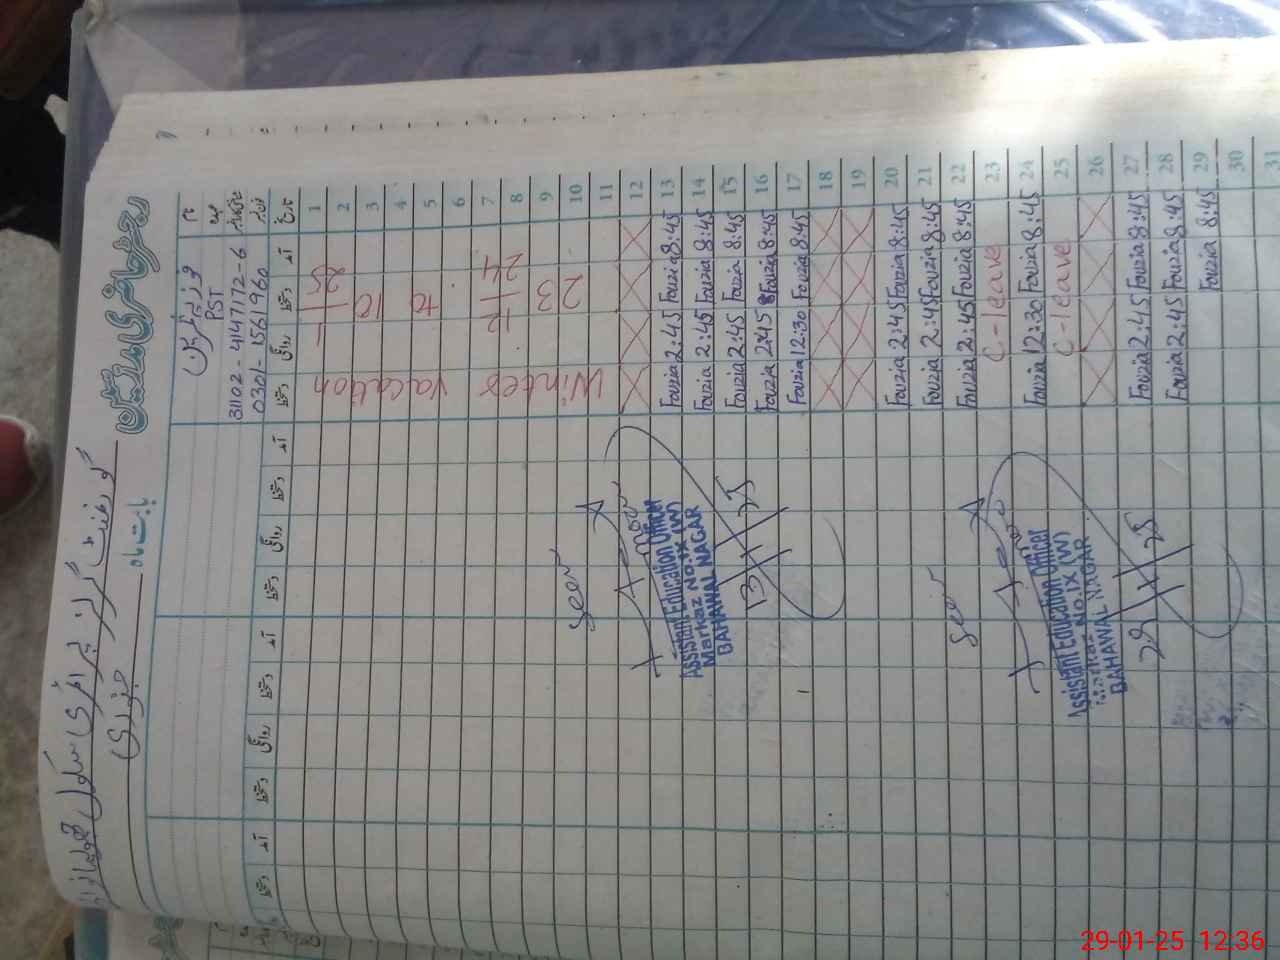 رجسٹر حاضری مدرسین
گورنمنٹ گرلز پرائمری سکول
بابت ماہ جنوری
نام
عہدہ PST
31102-4147172-6
0301-1561960
تاریخ آمد دستخط روانگی دستخط آمد دستخط روانگی دستخط آمد دستخط روانگی دستخط آمد دستخط
1
2
3
4
5
6
7
8
9
10
11
Winter vacation
23 24/12 to 10 1/25
12
13 8:45 Fouzia 2:45 Fouzia
14 8:45 Fouzia 2:45 Fouzia
15 8:45 Fouzia 2:45 Fouzia
16 8:45 Fouzia 2:45 Fouzia
17 8:45 Fouzia 12:30 Fouzia
18
19
20 8:45 Fouzia 2:45 Fouzia
21 8:45 Fouzia 2:45 Fouzia
22 8:45 Fouzia 2:45 Fouzia
23 C-leave
24 8:45 Fouzia 12:30 Fouzia
25 C-leave
26
27 8:45 Fouzia 2:45 Fouzia
28 8:45 Fouzia 2:45 Fouzia
29 8:45 Fouzia
30
31
Seen
Assistant Education Officer
Markaz No.IX (W)
BAHAWAL NAGAR
13/1/25
Seen
Assistant Education Officer
Markaz No.IX (W)
BAHAWAL NAGAR
29/1/25
29-01-25 12:36